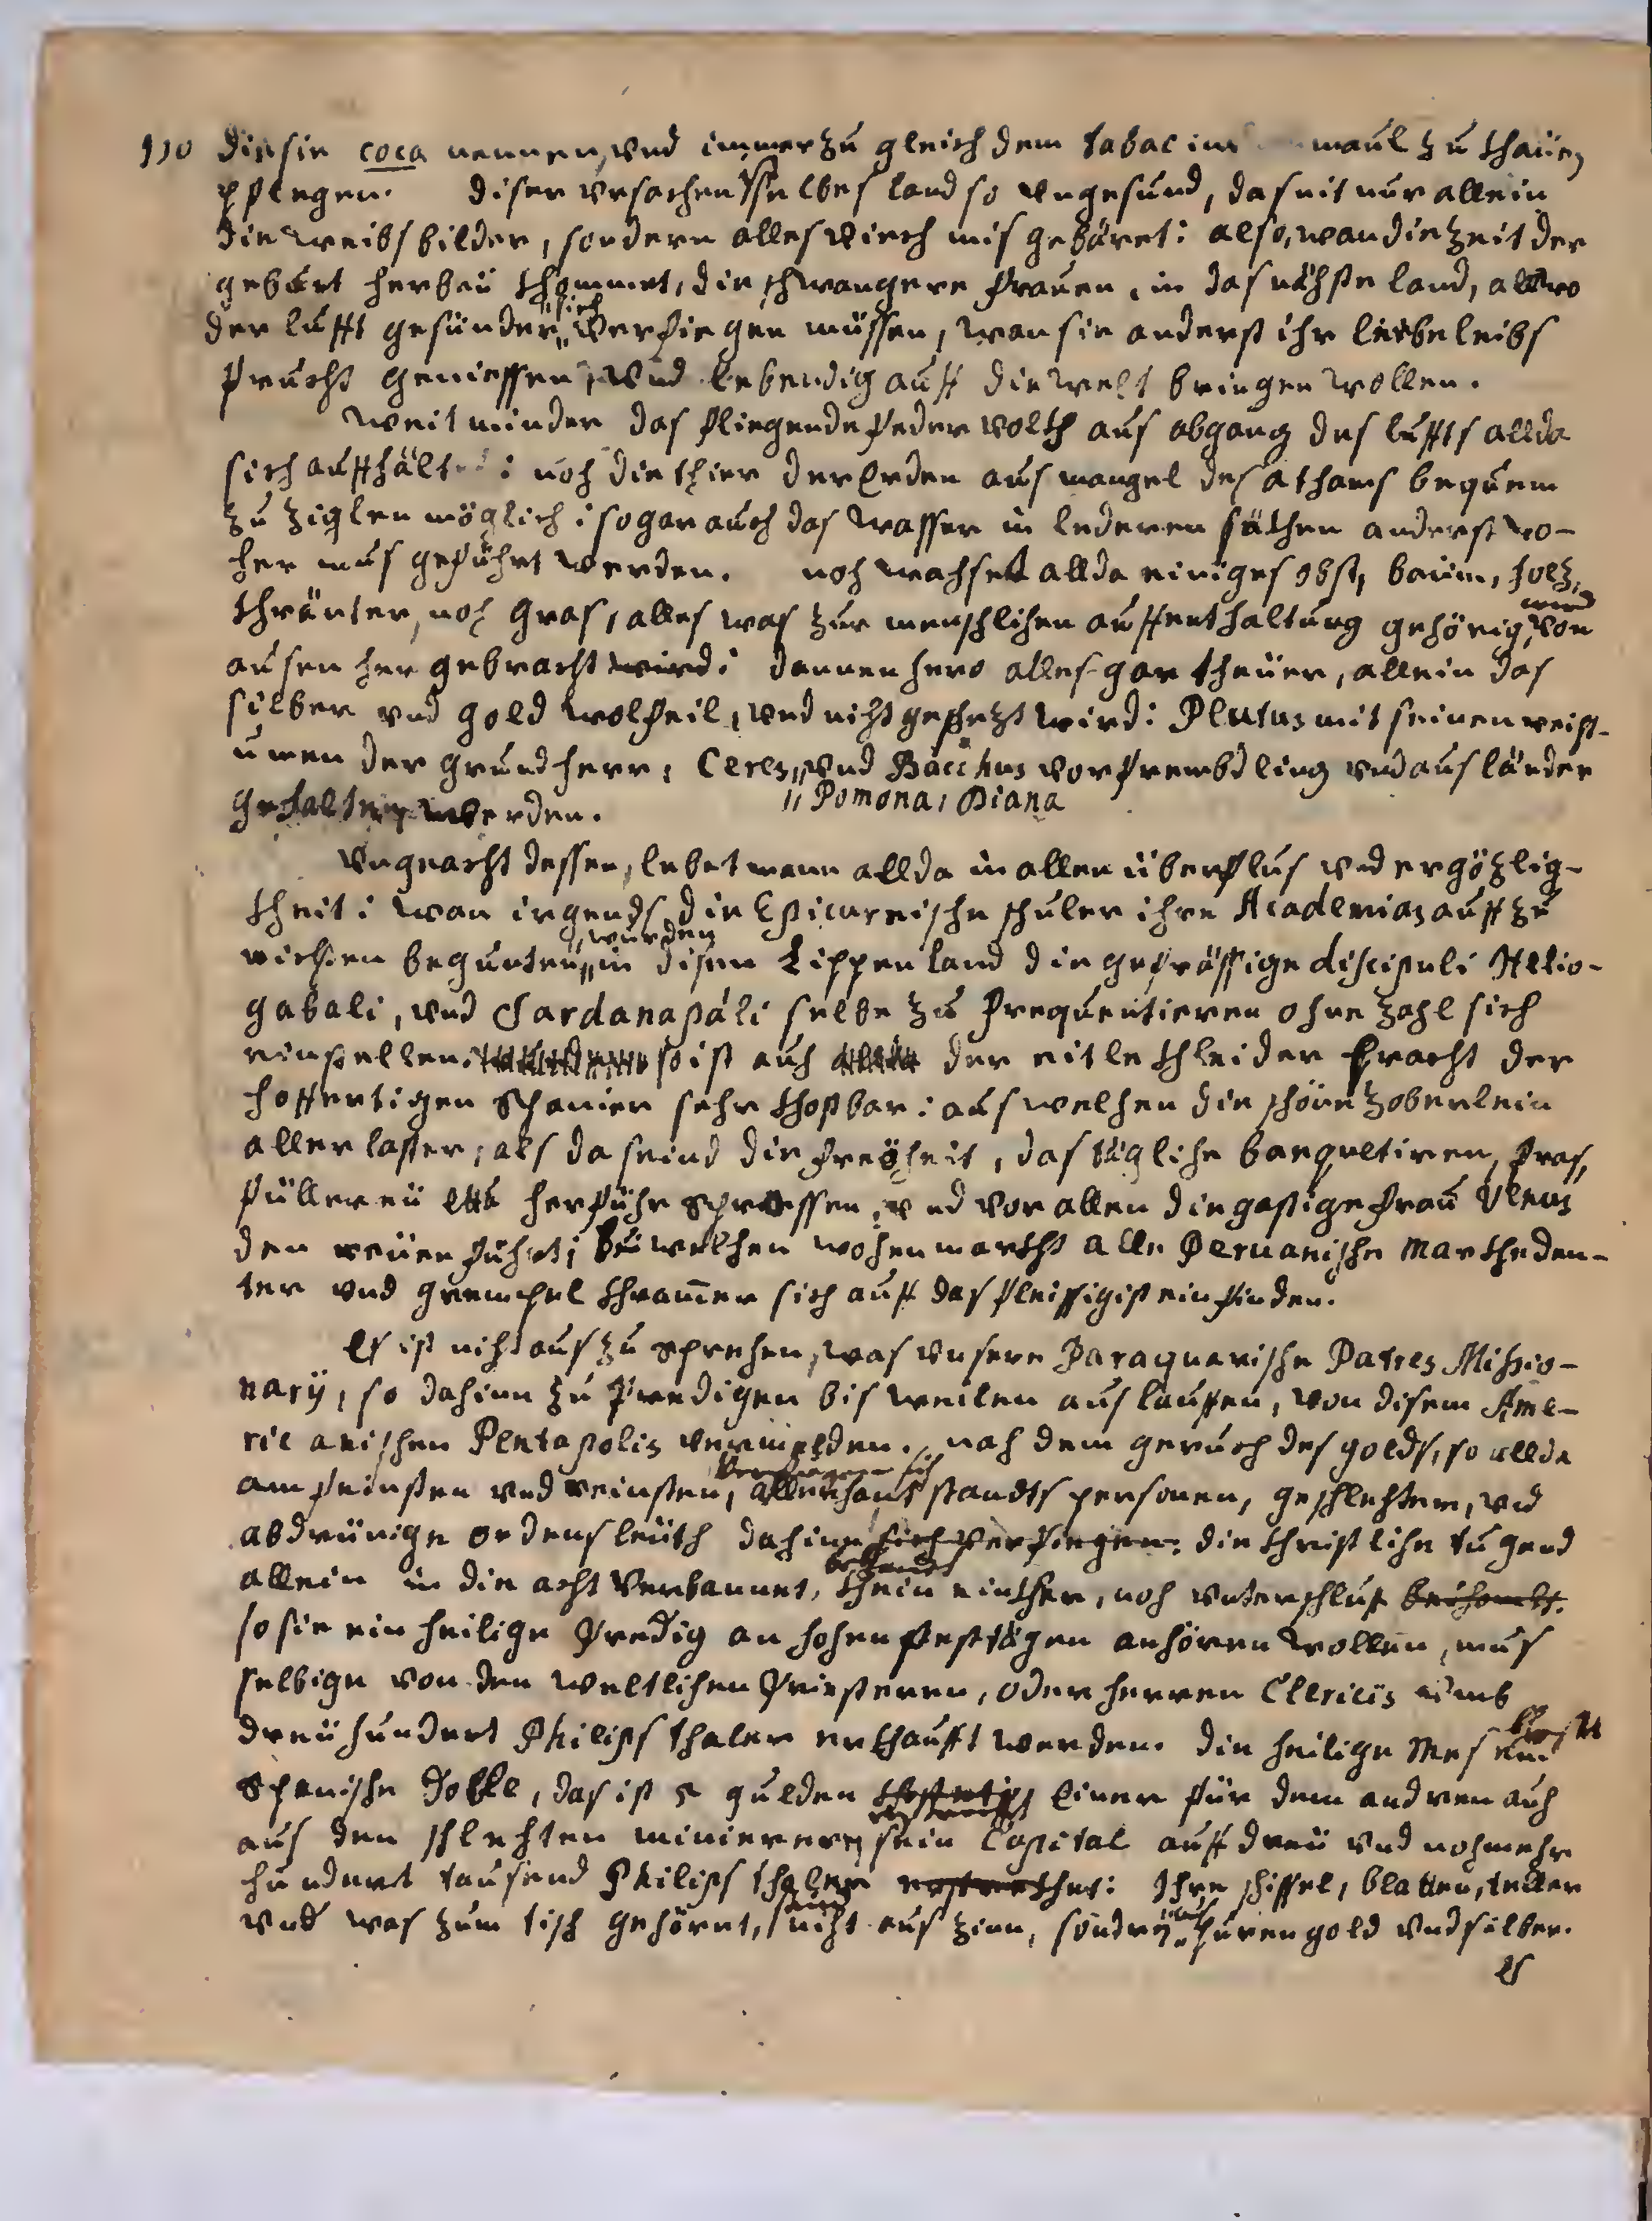 110 die sie coca nennen, und immerzu gleich dem tabac im maul zu khauen
pflegen. diser ursachen selbes land so ungesund, das nit nur allein
die weibsbilder, sondern alles viech misgebäret: also, wan die zeit der
geburt herbeü khommet, die schwangere frauen, in das nähste land, allwo
der lufft gesünder, sich verfiegen müssen, wan sie anderst ihr liebe leibs
frucht geniessen, und lebendig auff die welt bringen wollen.
Weit minder das fliegende federvolkh aus abgang des luffts allda
sich auffhält: noch die thier der Erden aus mangel des athams bequem
zu ziglen möglich: sogar auch das wasser in lederen säkhen anderstwo-
her mus geführt werden. noch wachset allda einiges obst, baum, holz,
khräuter, noch gras, alles was zur menschlichen auffenthaltung gehörig, wird von
ausen her gebracht wird: dannenhero alles gar theuer, allein das
silber und gold wolfeil, und nicht geschezt wird: Plutus mit seinen reich-
tumen der grundherr, Ceres, und Bacchus vor frembdling und ausländer
" Pomona, Diana
gehalten werden.
Ungeacht dessen, lebet mann allda in allen überflus und ergözlig-
kheit: wan irgends die Epicureische schuler ihre Academias auffzu
richten begunten, wurden in disem Lippenland die gefrässige discipuli Helio-
gabali, und Sardanapáli selbe zu frequentieren ohne zahl sich
einstellen: so ist auch der eitle khleider bracht der
hoffertigen Spanier sehr khostbar: aus welchen die schöne zoberlein
aller laster, als da seind die freÿheit, das tägliche banquetiren, fras,
füllereü etc herführ sprossen, und vor allen die gastige frau Venus
den reüen führt; beü welchen wochenmarckht alle Peruanische Markheden-
ter und grempel khramer sich auff das fleissigist einfinden.
Es ist nicht auszusprechen, was unsere Paraquarische Patres Missio-
narÿ, so dahinn zu predigen bisweilen auslauffen, von disem Ame-
ricanischen Pentapolis vermelden. nach dem geruch des golds, so allda
am feinsten und reinsten, verfiegen sich allerhand standts personen, geschlechter, und
abdrünige ordensleüth dahinn sich verfiegen: die christliche tugend
allein in die acht verbannet, bekhombt khein einkher, noch unterschluf bekhombt.
so sie ein heilige predig an hohen festtägen anhören wollen, mus
selbige von den weltlichen priesteren, oder herren Clericis umb
dreühundert Philips thaler erkhaufft werden. die heilige Mes
Spanische Dobbe, das ist 5 gulden Einer für dem andren auch
aus den schlechten minierern sein Capital auff dreü und noch mehr
hundert tausend Philips thaler erstrekhet: Ihre schissel, blatten, teller
und was zum tisch gehöret, seind nicht aus zinn, sondern aus puren gold und silber.
es